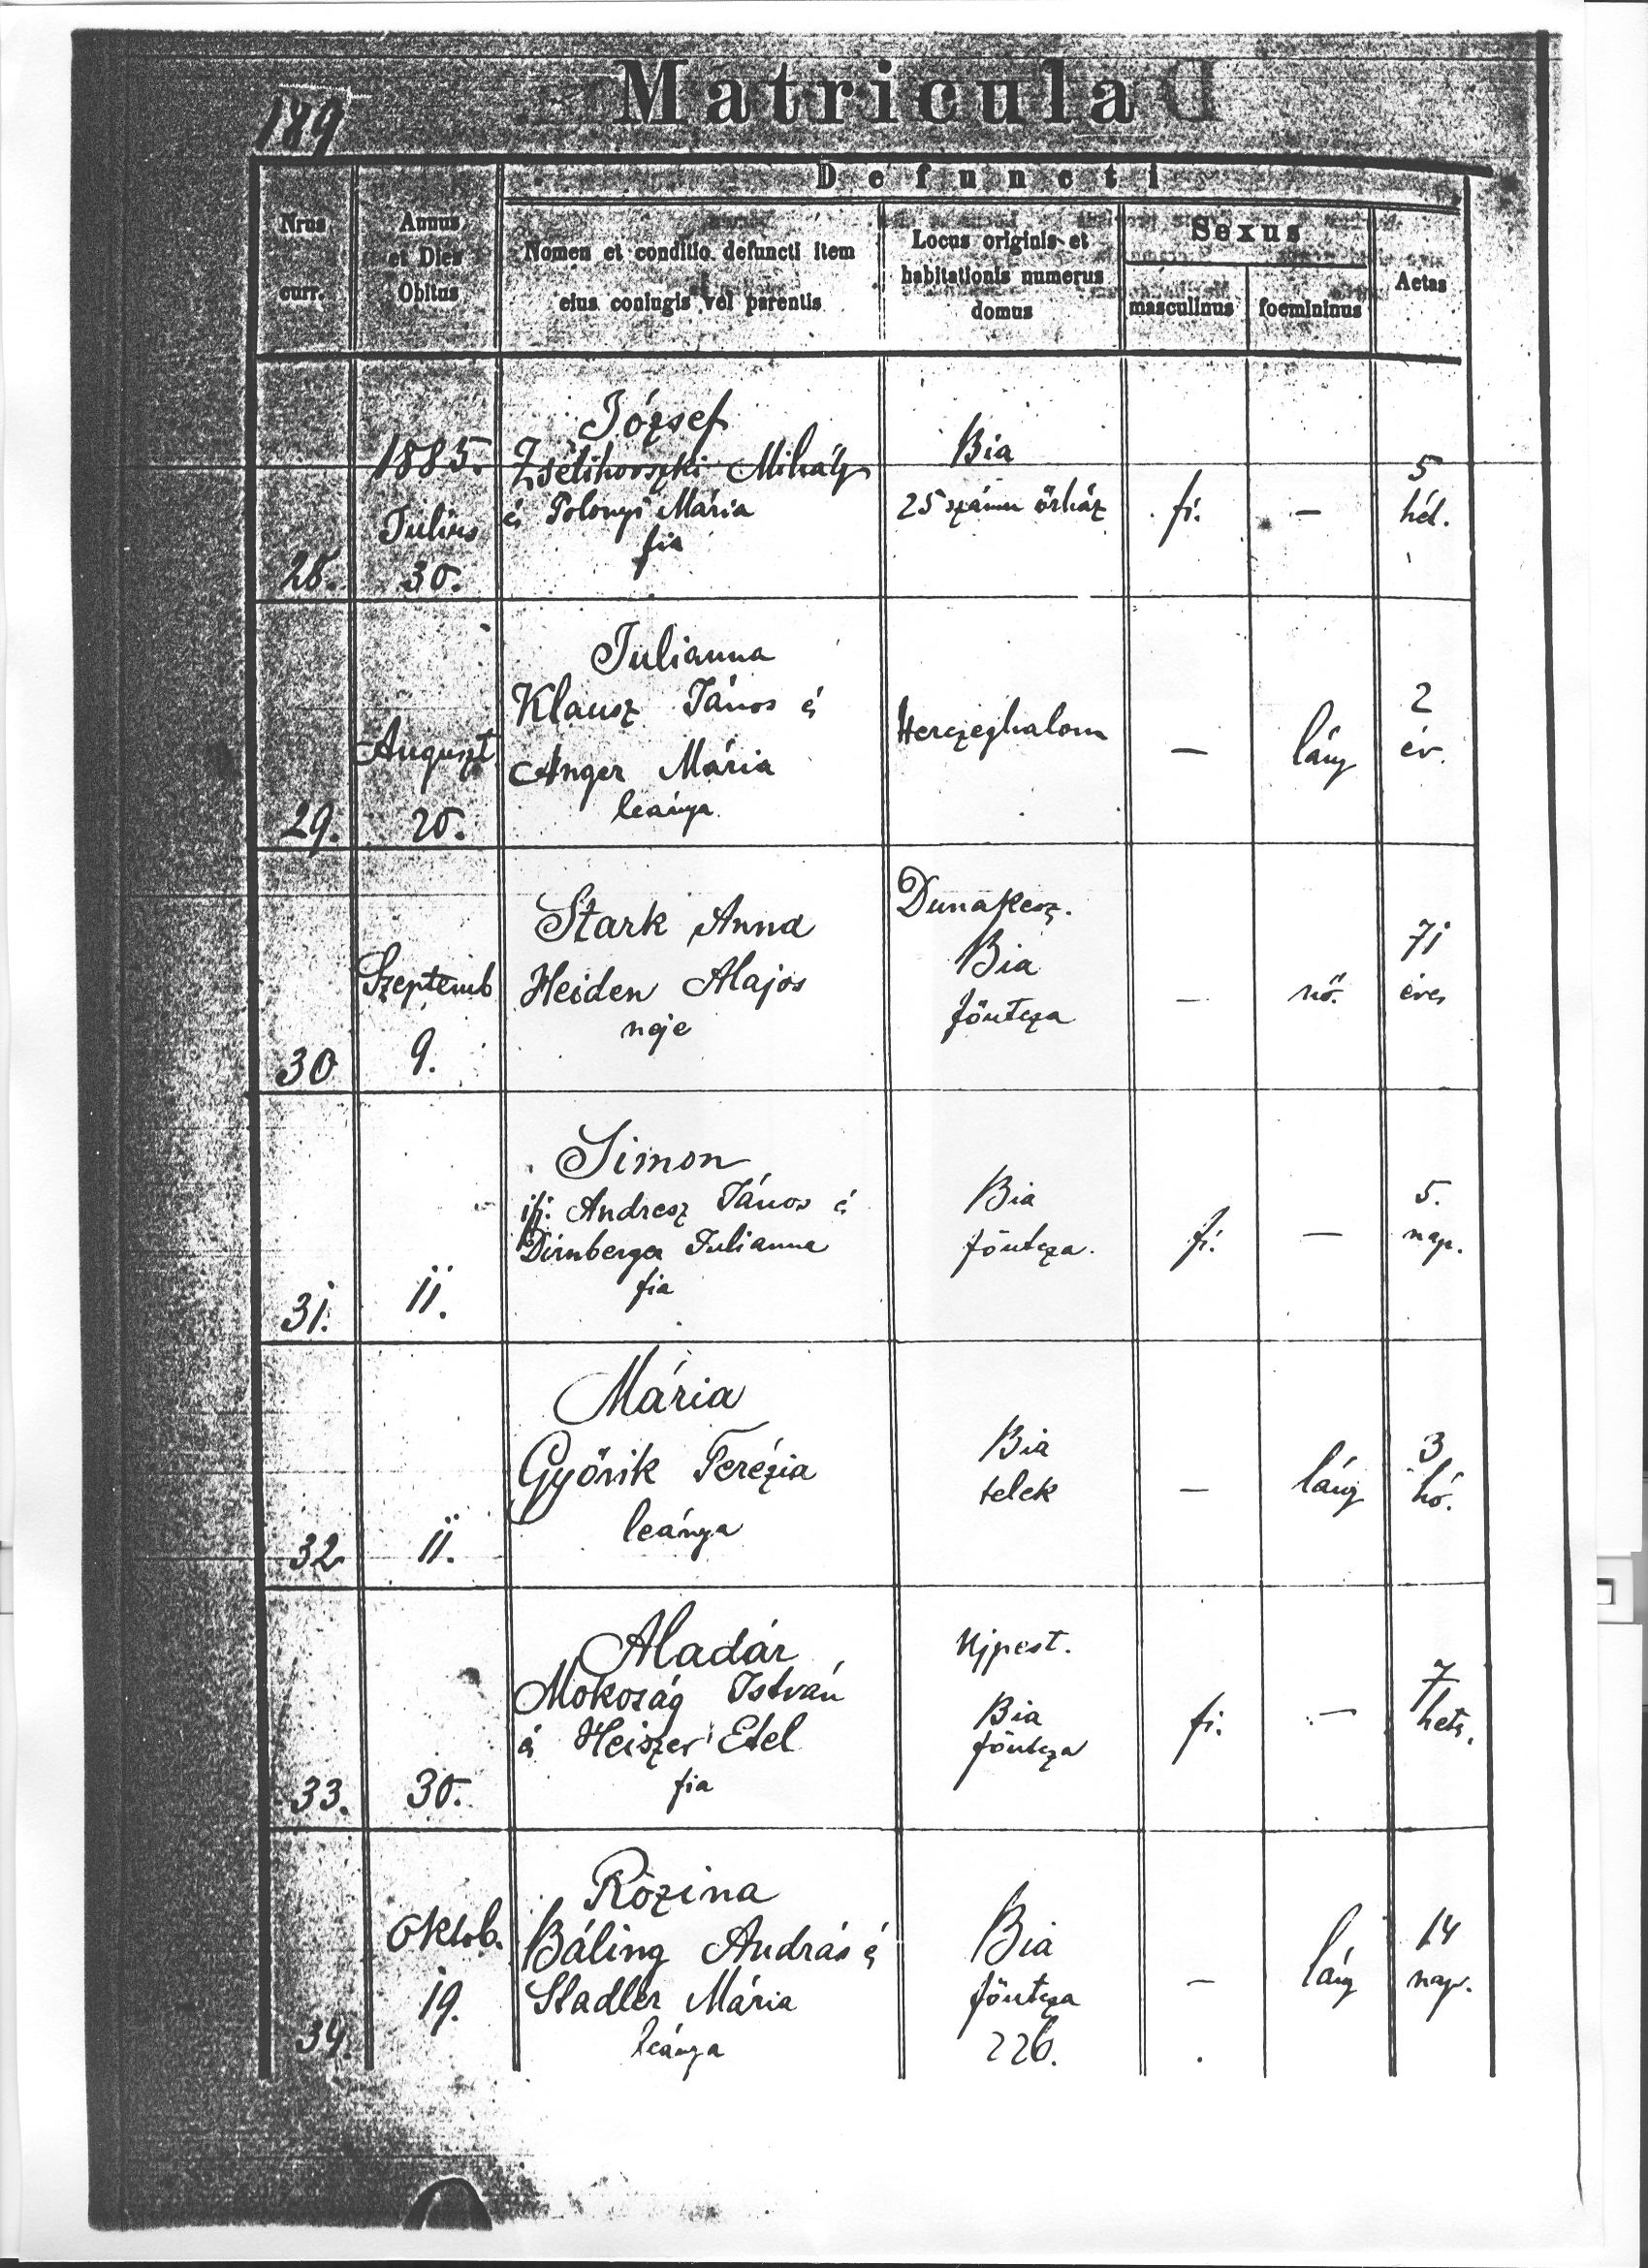 189
Matricula
Defuncti
Nrus curr.
Annus et Dies Obitus
Nomen et conditio defuncti item eius coniugis vel parentis
Locus originis et habitationis numerus domus
Sexus
masculinus
foemininus
Aetas
28.
1885.
Julius
30.
József
Zsélihovszki Mihály
és Polonyi Mária
fia
Bia
25 számu őrház
fi.
—
5
hét.
29.
Auguszt
20.
Julianna
Klausz János és
Anger Mária
leánya
Herczeghalom
—
lány
2
év.
30
Szeptemb
9.
Stark Anna
Heiden Alajos
neje
Dunakesz.
Bia
főutcza
—
nő.
71
éves
31.
11.
Simon
ifj. Andresz János és
Dirnberger Julianna
fia
Bia
főutcza.
fi.
—
5.
nap.
32
11.
Mária
Győrik Terézia
leánya
Bia
telek
—
lány
3
hó.
33.
30.
Aladár
Mokoság István
és Heiszer Etel
fia
Ujpest.
Bia
főutcza
fi.
—
7
hets.
34.
Oktob.
19.
Rózina
Báling András és
Stadler Mária
leánya
Bia
főutcza
226.
—
lány
14
nap.